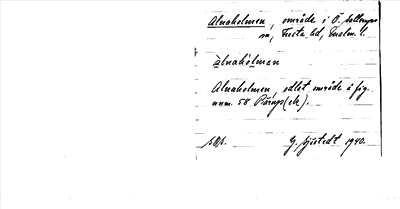 Alnaholmen, område i Ö. Sallerups
sn, Frosta hd, Malm. l.
àlnahòlman
Alnaholmen, odlat område å fig.
num. 58 Pärup (ek).
G. Sjöstedt 1940.